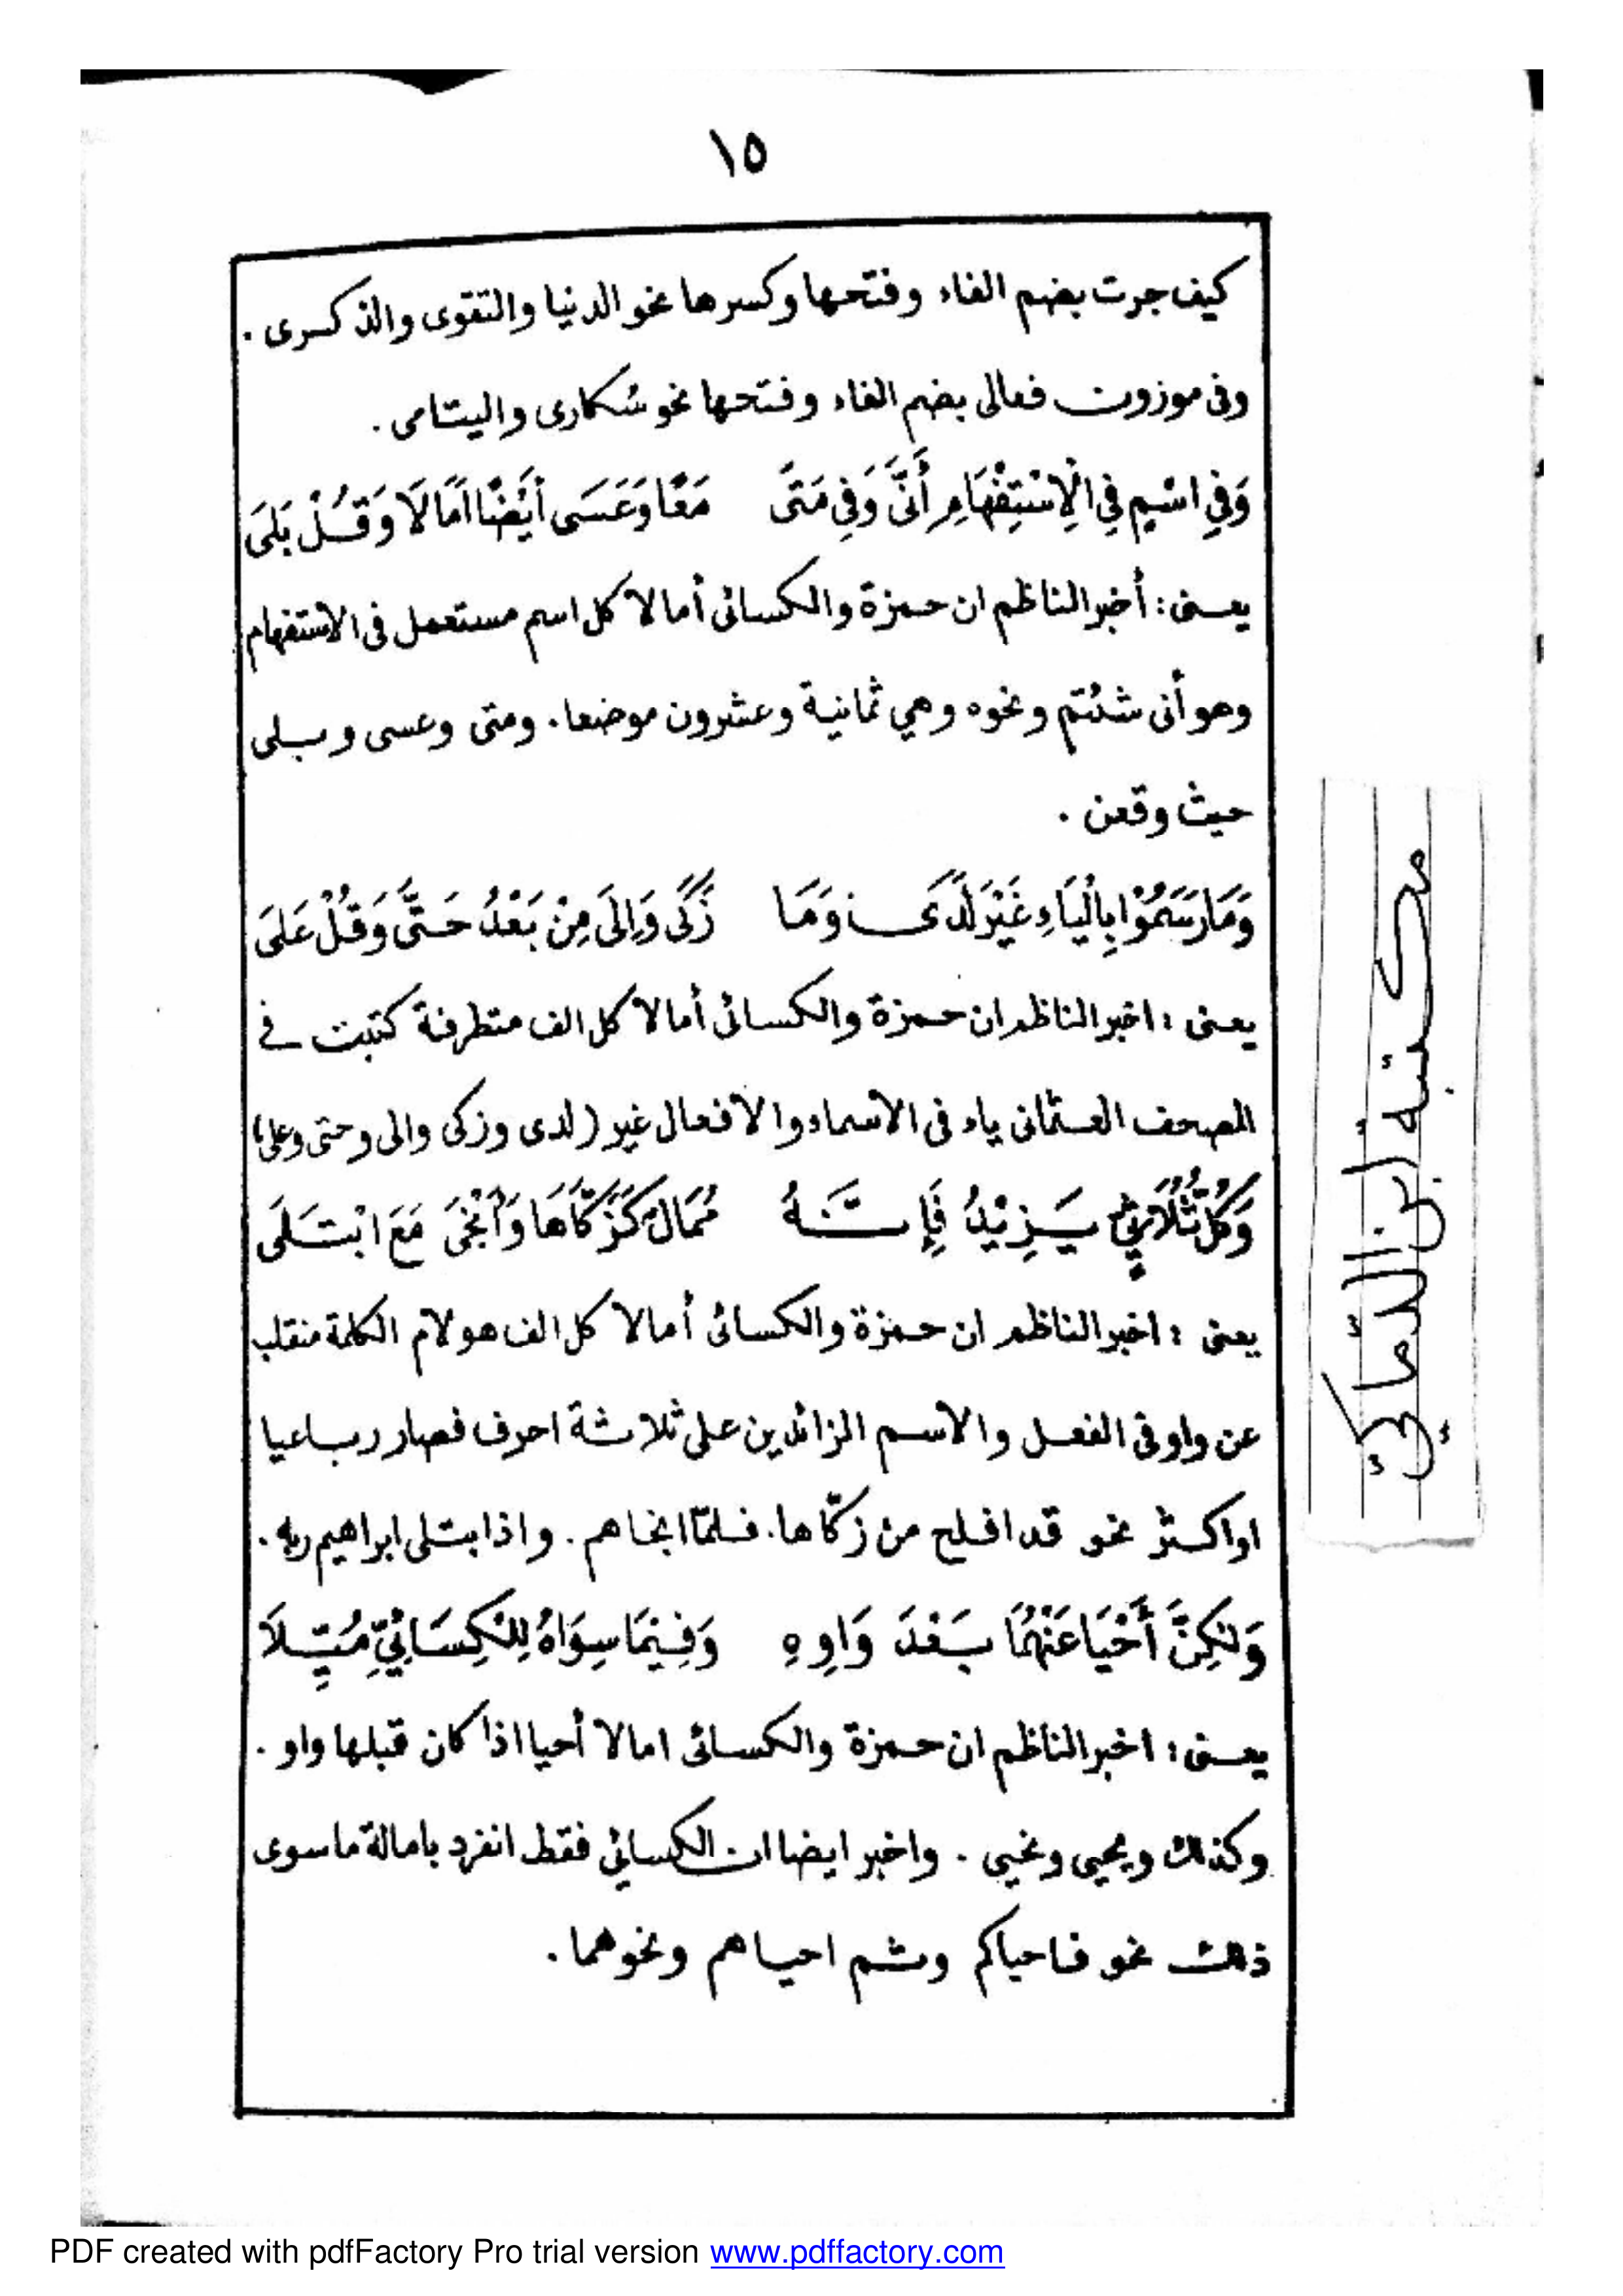 ١٥
كيف جرت بضم الفاء وفتحها وكسرها نحو الدنيا والتقوى والذكرى .
وفى موزون فعالى بضم الفاء وفتحها نحو سُكارى واليتامى .
وَفِي اسْمٍ فِي الْاِسْتِفْهَامِ أَنَّى وَفِي مَتَى مَعًا وَعَسَى أَيْضًا اَمَالَا وَقُلْ بَلَى
يعنى : أخبر الناظم ان حمزة والكسائى أمالا كل اسم مستعمل فى الاستفهام
وهو أنى شئتم ونحوه وهي ثمانية وعشرون موضعا . ومتى وعسى وبلى
حيث وقعن .
وَمَا رَسَمُوْا بِالْيَاءِ غَيْرَ لَدَى وَمَا زَكَى وَاِلَى مِنْ بَعْدُ حَتَّى وَقُلْ عَلَى
يعنى : اخبر الناظم ان حمزة والكسائى أمالا كل الف متطرفة كتبت في
المصحف العثمانى ياء فى الاسماء والافعال غير (لدى وزكى والى وحتى وعلى)
وَكُلُّ ثُلَاثِيٍّ يَزِيْدُ فَإِنَّهُ مُمَالٌ كَزَكَّاهَا وَأَنْجَى مَعَ ابْتَلَى
يعنى : اخبر الناظم ان حمزة والكسائى أمالا كل الف هو لام الكلمة منقلب
عن واو فى الفعل والاسم الزائدين على ثلاثة احرف فصار رباعيا
او اكثر نحو قد افلح من زكّاها . فلمّا انجاهم . واذ ابتلى ابراهيم ربه .
وَلٰكِنَّ أَحْيَا عَنْهُمَا بَعْدَ وَاوِهِ وَفِيْمَا سِوَاهُ لِلْكِسَائِيِّ مُيِّلَا
يعنى : اخبر الناظم ان حمزة والكسائى امالا أحيا اذا كان قبلها واو .
وكذلك ويحيى ونحيى . واخبر ايضا ان الكسائي فقط انفرد بامالة ما سوى
ذلك نحو فاحياكم وثم احياهم ونحوهما .
مكتبة ابن
PDF created with pdfFactory Pro trial version www.pdffactory.com